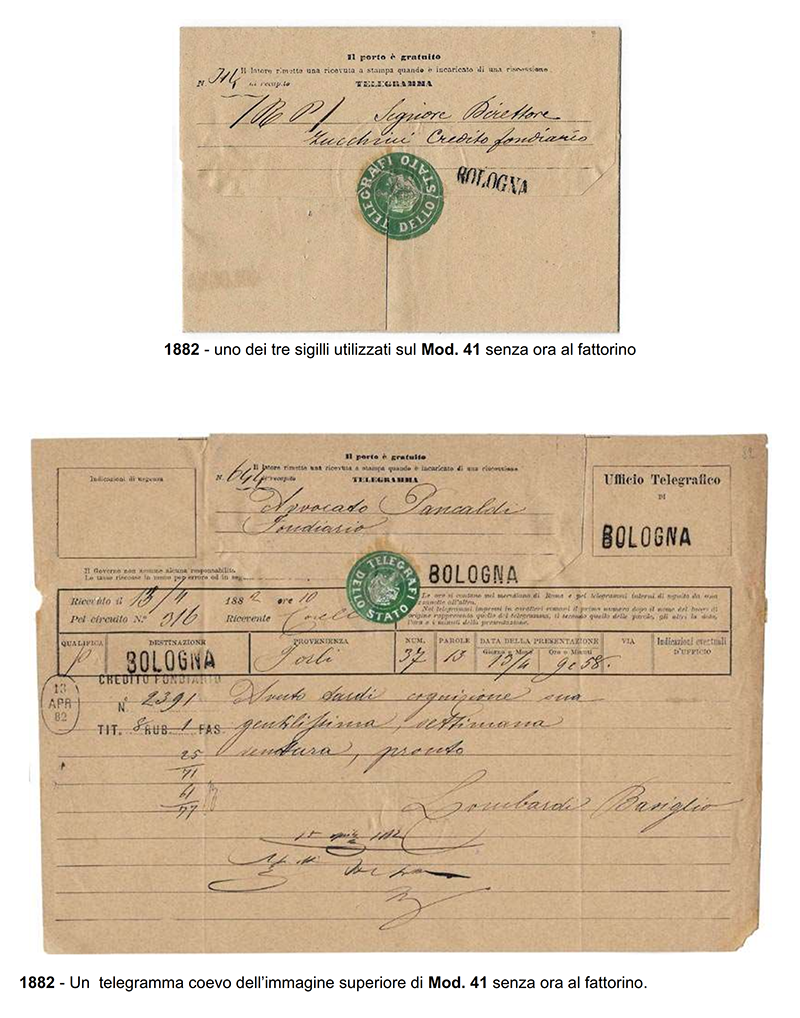 Il porto è gratuito
Il latore rimette una ricevuta a stampa quando è incaricato di una riscossione.
N. di recapito TELEGRAMMA
/R P/ Signore Direttore
Zucchini Credito fondiario
TELEGRAFI DELLO STATO
BOLOGNA
1882 - uno dei tre sigilli utilizzati sul Mod. 41 senza ora al fattorino
Il porto è gratuito
Il latore rimette una ricevuta a stampa quando è incaricato di una riscossione
N. 644 di recapito TELEGRAMMA
Indicazioni di urgenza
Avvocato Pancaldi
Fondiario
Ufficio Telegrafico
DI
BOLOGNA
TELEGRAFI DELLO STATO
BOLOGNA
Il Governo non assume alcuna responsabilità
Le tasse riscosse in meno per errore od in seg
Ricevuto il 13/4 1882 ore 10
Pel circuito N.º 316 Ricevente
Le ore si contano nel meridiano di Roma e pel telegrammi interni di seguito da una mezzanotte all'altra.
Nei telegrammi impressi in caratteri romani il primo numero dopo il nome del luogo di origine rappresenta quello del telegramma, il secondo quello delle parole, gli altri la data, l'ora e i minuti della presentazione.
QUALIFICA DESTINAZIONE PROVENIENZA NUM. PAROLE DATA DELLA PRESENTAZIONE VIA Indicazioni eventuali D'UFFICIO
Giorno e Mese Ore e Minuti
P BOLOGNA Forlì 37 13 13/4 9 e 58.
CREDITO FONDIARIO
13 APR 82
N. 2391
TIT. 8 RUB. 1 FAS.
Avuto tardi cognizione sua
gentilissima, settimana
ventura, pronto
25
71
61
77
Lombardi Baviglio
1882
1882 - Un telegramma coevo dell'immagine superiore di Mod. 41 senza ora al fattorino.